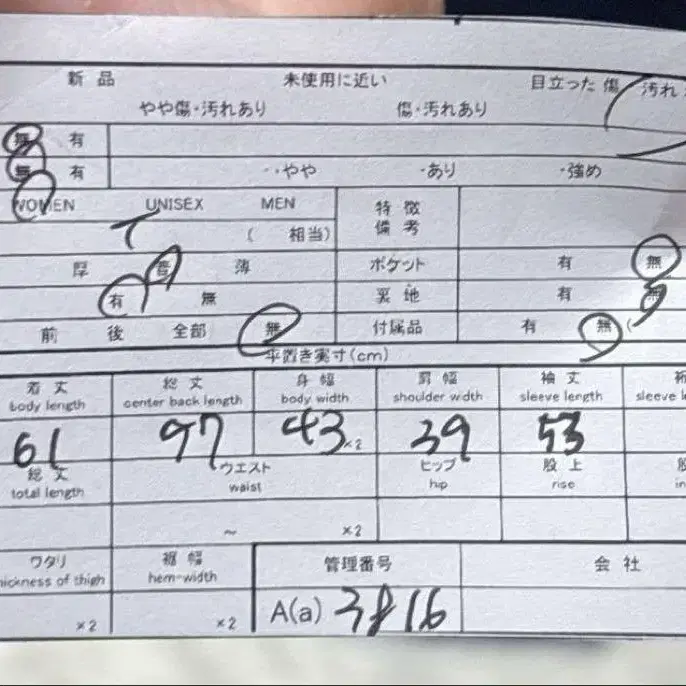 新品 未使用に近い 目立った傷 汚れ
やや傷・汚れあり 傷・汚れあり
無 有
無 有 ・やや ・あり ・強め
WOMEN UNISEX MEN 特徴
( 相当) 備考
厚 普 薄 ポケット 有 無
有 無 裏地 有 無
前 後 全部 無 付属品 有 無 (
平置き実寸(cm)
着丈 総丈 身幅 肩幅 袖丈 裄
body length center back length body width shoulder width sleeve length sleeve
61 97 43×2 39 53
総丈 ウエスト ヒップ 股上 股
total length waist hip rise in
~ ×2
ワタリ 裾幅 管理番号 会社
hickness of thigh hem-width
×2 ×2 A(a) 3816